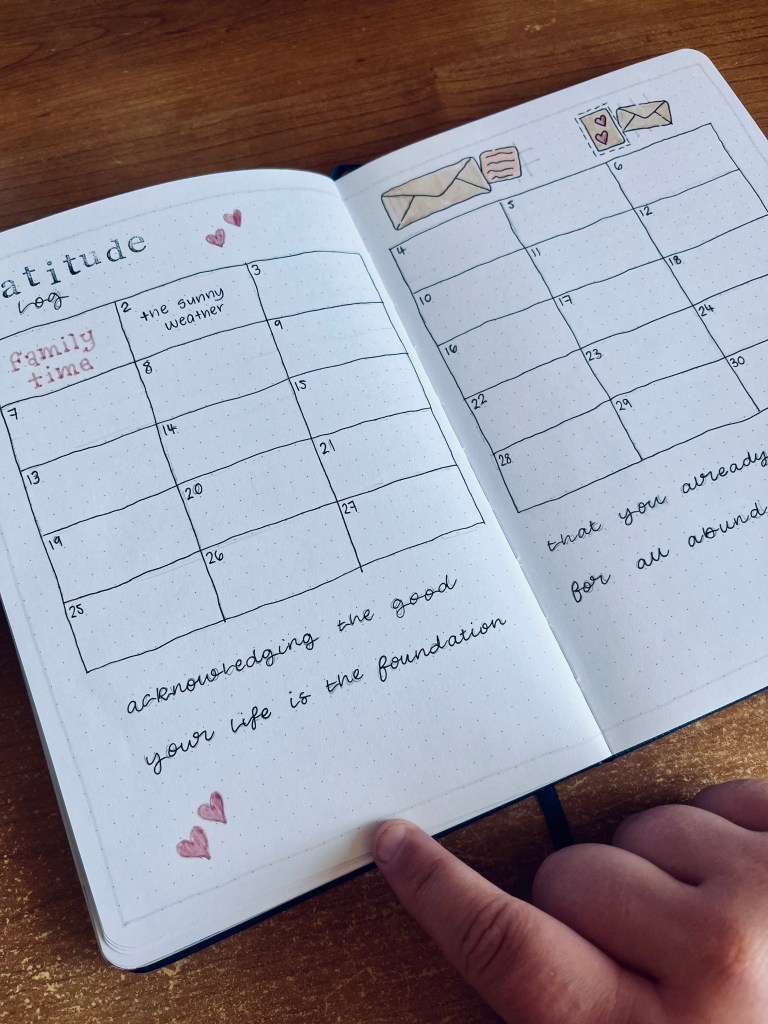 atitude
Log
family
time
2
the sunny
weather
3
7
8
9
13
14
15
19
20
21
25
26
27
acknowledging the good
your life is the foundation
4
5
6
10
11
12
16
17
18
22
23
24
28
29
30
that you already
for all abund